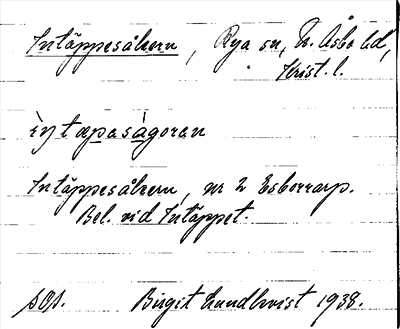 Intäppesåkern, Rya sn, N. Åsbo hd,
Krist. l.
ìŋtæpasàgoran
Intäppesåkern, nr 2 Esborrarp.
Bel. vid Intäppet.
Birgit Lundkvist 1938.